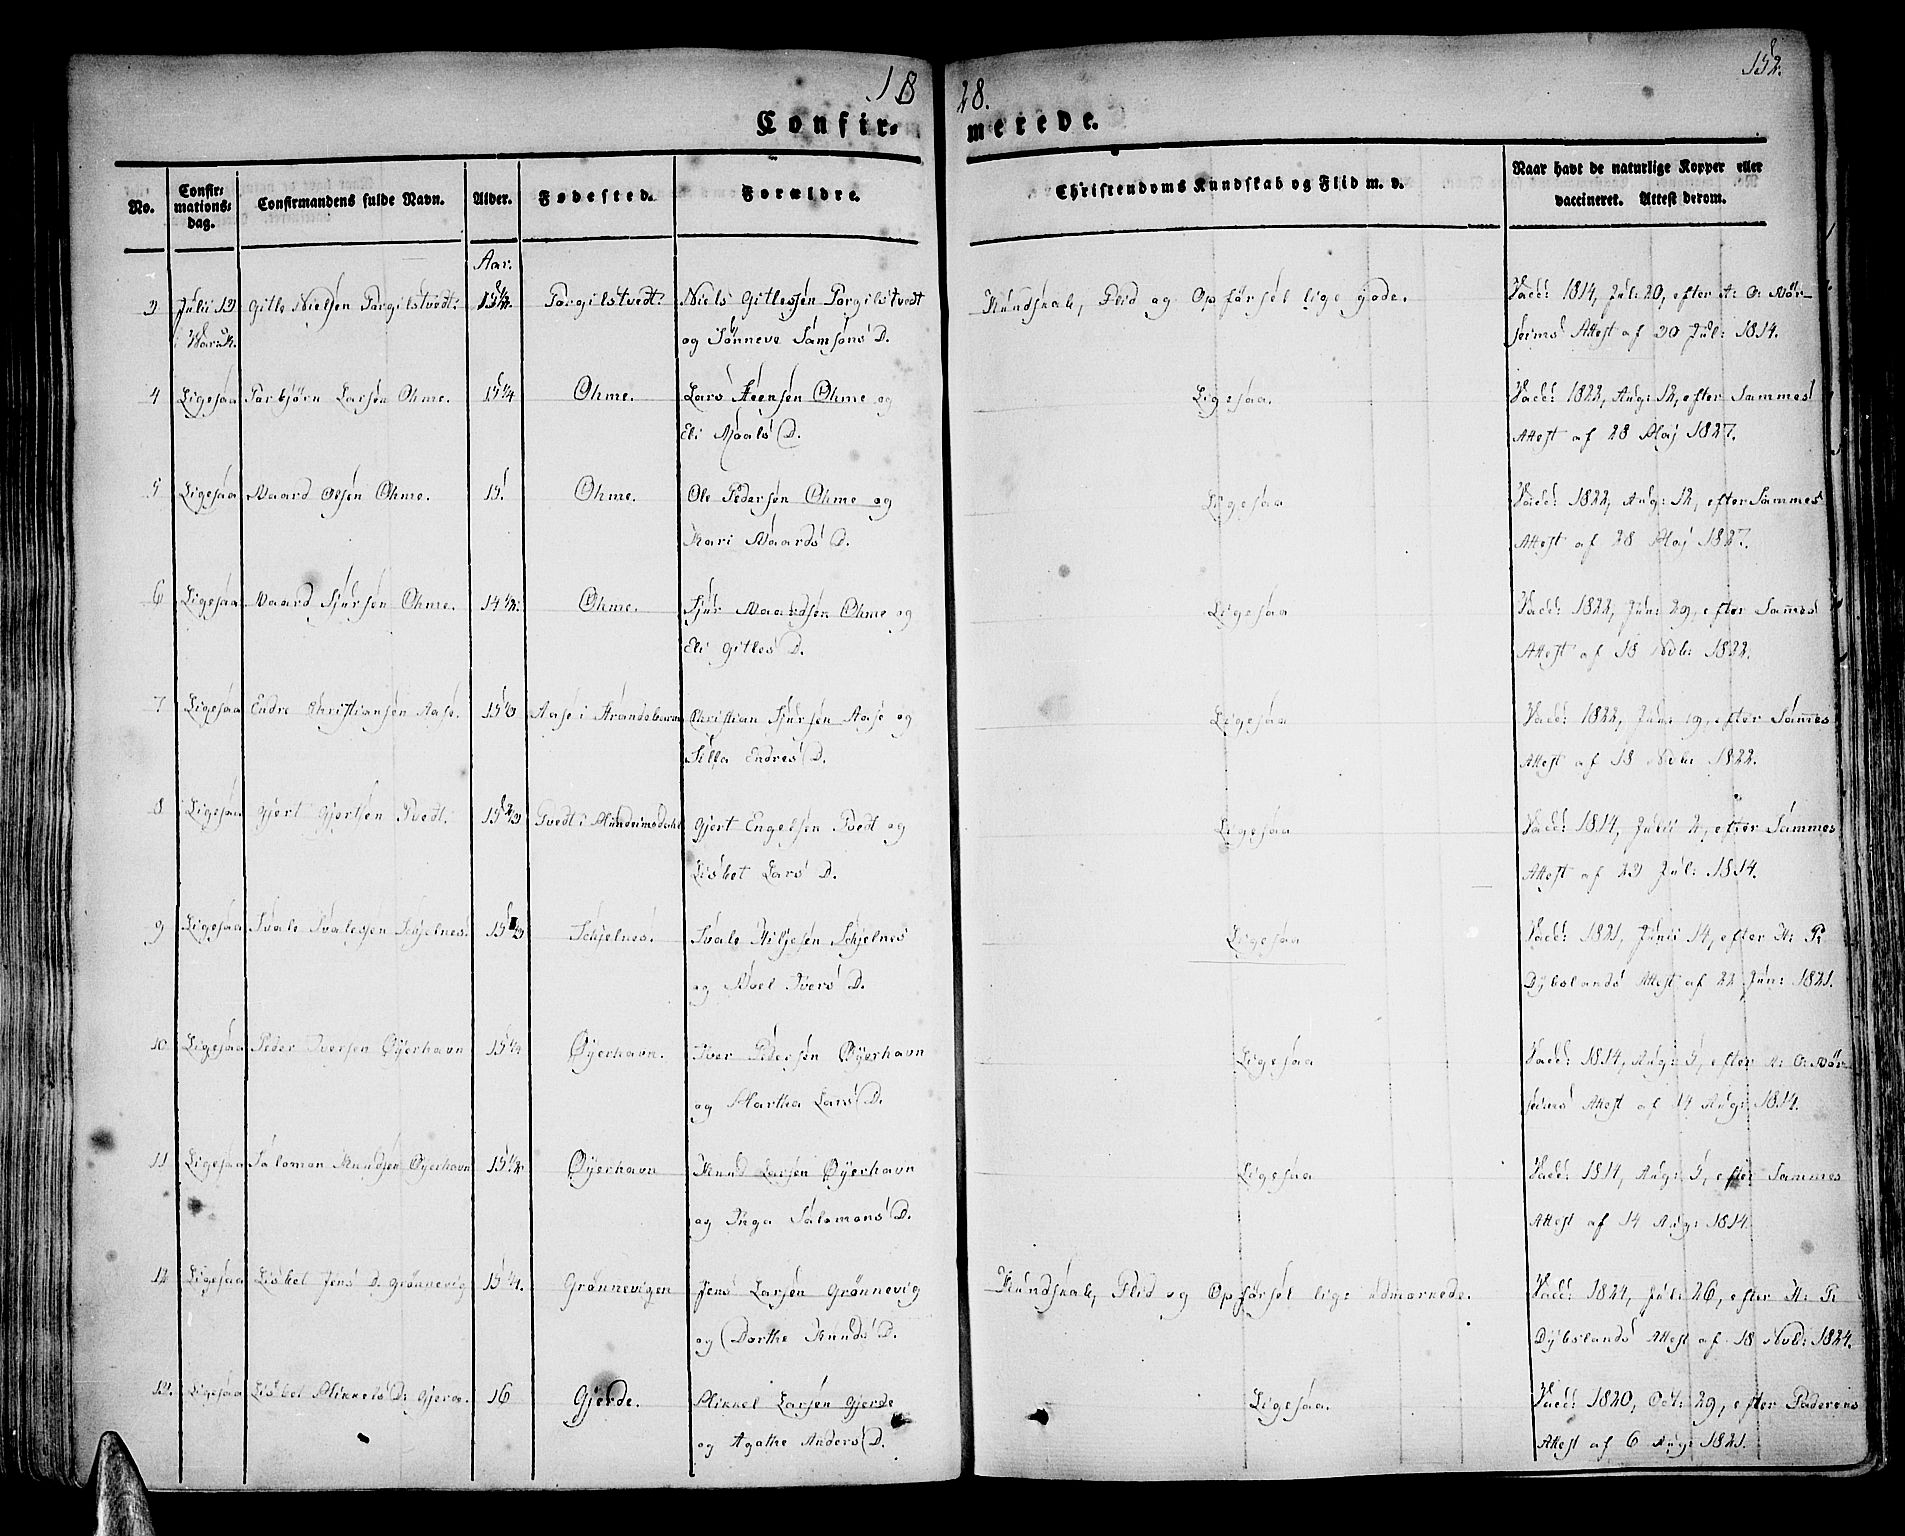 1828.
152.
Confirmerede.
No.
Confirmationsdag.
Confirmandens fulde Navn.
Alder.
Fødested.
Forældre.
Christendoms Kundskab og Flid m. v.
Naar havt de naturlige Kopper eller vaccineret. Attest derom.
Aar.
3 Julii 13 Gitle Nielsen Torgilstvedt. Torgilstvedt. Niels Gitlessen Torgilstvedt Kundskab, Flid og Opførsel lige gode. Vacc: 1814, Jul: 20, efter A: O: Nør-
og Sønneve Samsons D. seims Attest af 20 Jul: 1814.
4 Ligesaa Torbjørn Larsen Ohme. 15 1/4 Ohme. Lars Steensen Ohme og Ligesaa. Vacc: 1822, Aug: 12, efter Sammes
Eli Maals D. Attest af 28 Maj 1827.
5 Ligesaa Naard Olsen Ohme. 15 Ohme. Ole Pedersen Ohme og Ligesaa Vacc: 1822, Aug: 12, efter Sammes
Kari Naards D. Attest af 28 Maj 1827.
6 Ligesaa Naard Sjursen Ohme. 14 1/2. Ohme. Sjur Naardsen Ohme og Ligesaa Vacc: 1822, Jun: 29, efter Sammes
Eli Gitles D. Attest af 18 Novb: 1822.
7 Ligesaa Endre Christiansen Aase. Aase i Strandebarm Christian Sjursen Aase og Ligesaa Vacc: 1822, efter Sammes
Silla Endres D. Attest af 18 Novbr 1822.
8 Ligesaa Gjert Gjertsen Tvedt. 15 2/3 Tvedt i Mundeimsdalel Gjert Engelsen Tvedt og Ligesaa Vacc: 1814, Julii 2, efter Sammes
Lisbet Lars D. Attest af 23 Jul: 1814.
9 Ligesaa Svale Svalessen Schjelnes. Schjelnes. Svale Hiljesen Schjelnes Ligesaa Vacc: 1821, Junii 14, efter H: P:
og Ivers D. Dybslands Attest af 22 Jun: 1821.
10 Ligesaa Peder Iversen Øyerhavn 15 1/4 Øyerhavn. Iver Pedersen Øyerhavn Ligesaa Vacc: 1814, Aug: 5, efter A: O: Nør-
og Martha Lars D. seims Attest af 14 Aug: 1814.
11 Ligesaa Salomon Knudsen Øyerhavn 15 1/2. Øyerhavn Knud Larsen Øyerhavn Ligesaa Vacc: 1814, Aug: 5, efter Sammes
og Inga Salomons D. Attest af 14 Aug: 1814.
12 Ligesaa Lisbet Jens D. Grønnevig 15 1/4. Grønnevigen Jens Larsen Grønnevig Kundskab, Flid og Opførsel lige udmærkede. Vacc: 1824, Jul: 26, efter H: P:
og Dorthe Knuds D. Dybslands Attest af 18 Novb: 1824.
12. Ligesaa Lisbet Mikkels D: Gjerde. 16 Gjerde. Mikkel Larsen Gjerde Ligesaa. Vacc: 1820, Oct: 29, efter Pedersens
og Agathe Anders D. Attest af 6 Aug: 1821.